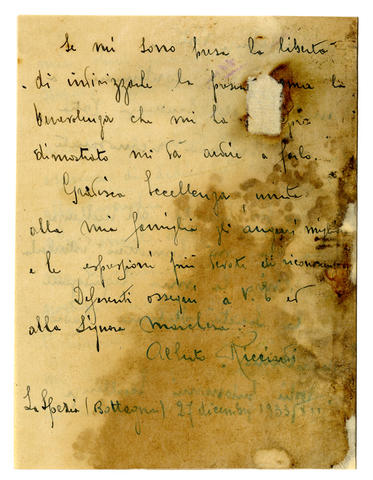 Se mi sono presa la libertà
di indirizzarle la
benevolenza che mi ha
dimostrato mi dà ardire a farlo.
Gradisca Eccellenza, unita
alla mia famiglia gli auguri
e le espressioni più devote di
Deferenti ossequi a V. E ed
alla Signora Marchesa.
Alberto Ricciardi
La Spezia 27 dicembre 1933